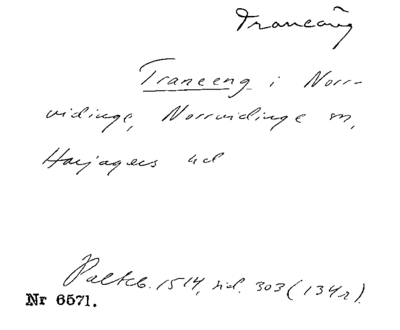 Traneäng
Traneeng i Norr-
vidinge, Norrvidinge sn,
Harjagers hd
Palteb. 1514, sid. 303 (134r).
Nr 6571.